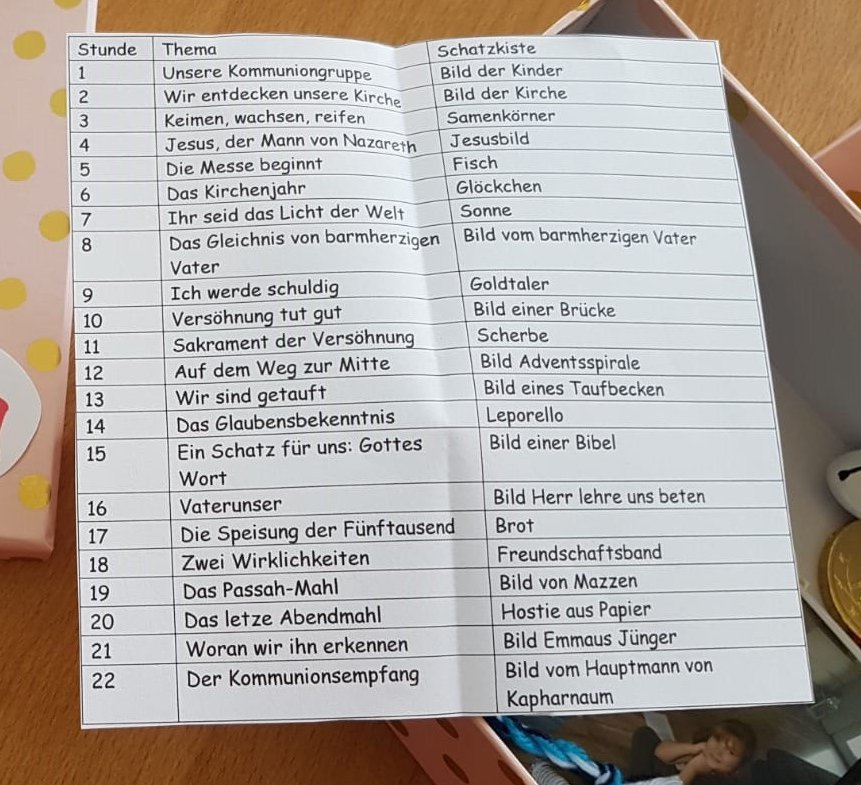 Stunde Thema Schatzkiste
1 Unsere Kommuniongruppe Bild der Kinder
2 Wir entdecken unsere Kirche Bild der Kirche
3 Keimen, wachsen, reifen Samenkörner
4 Jesus, der Mann von Nazareth Jesusbild
5 Die Messe beginnt Fisch
6 Das Kirchenjahr Glöckchen
7 Ihr seid das Licht der Welt Sonne
8 Das Gleichnis von barmherzigen Bild vom barmherzigen Vater
Vater
9 Ich werde schuldig Goldtaler
10 Versöhnung tut gut Bild einer Brücke
11 Sakrament der Versöhnung Scherbe
12 Auf dem Weg zur Mitte Bild Adventsspirale
13 Wir sind getauft Bild eines Taufbecken
14 Das Glaubensbekenntnis Leporello
15 Ein Schatz für uns: Gottes Bild einer Bibel
Wort
16 Vaterunser Bild Herr lehre uns beten
17 Die Speisung der Fünftausend Brot
18 Zwei Wirklichkeiten Freundschaftsband
19 Das Passah-Mahl Bild von Mazzen
20 Das letze Abendmahl Hostie aus Papier
21 Woran wir ihn erkennen Bild Emmaus Jünger
22 Der Kommunionsempfang Bild vom Hauptmann von
Kapharnaum